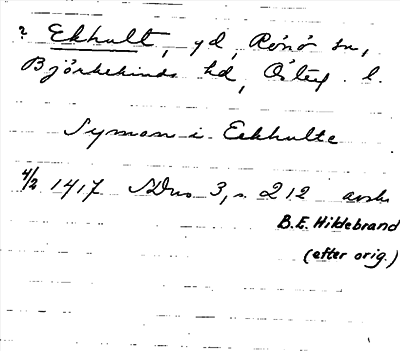 ? Ekhult, gd, Rönö sn,
Björkekinds hd, Östg. l.
Symon i Eekhulte
4/2 1417 SDns 3, s. 212 avskr
B.E. Hildebrand
(efter orig.)